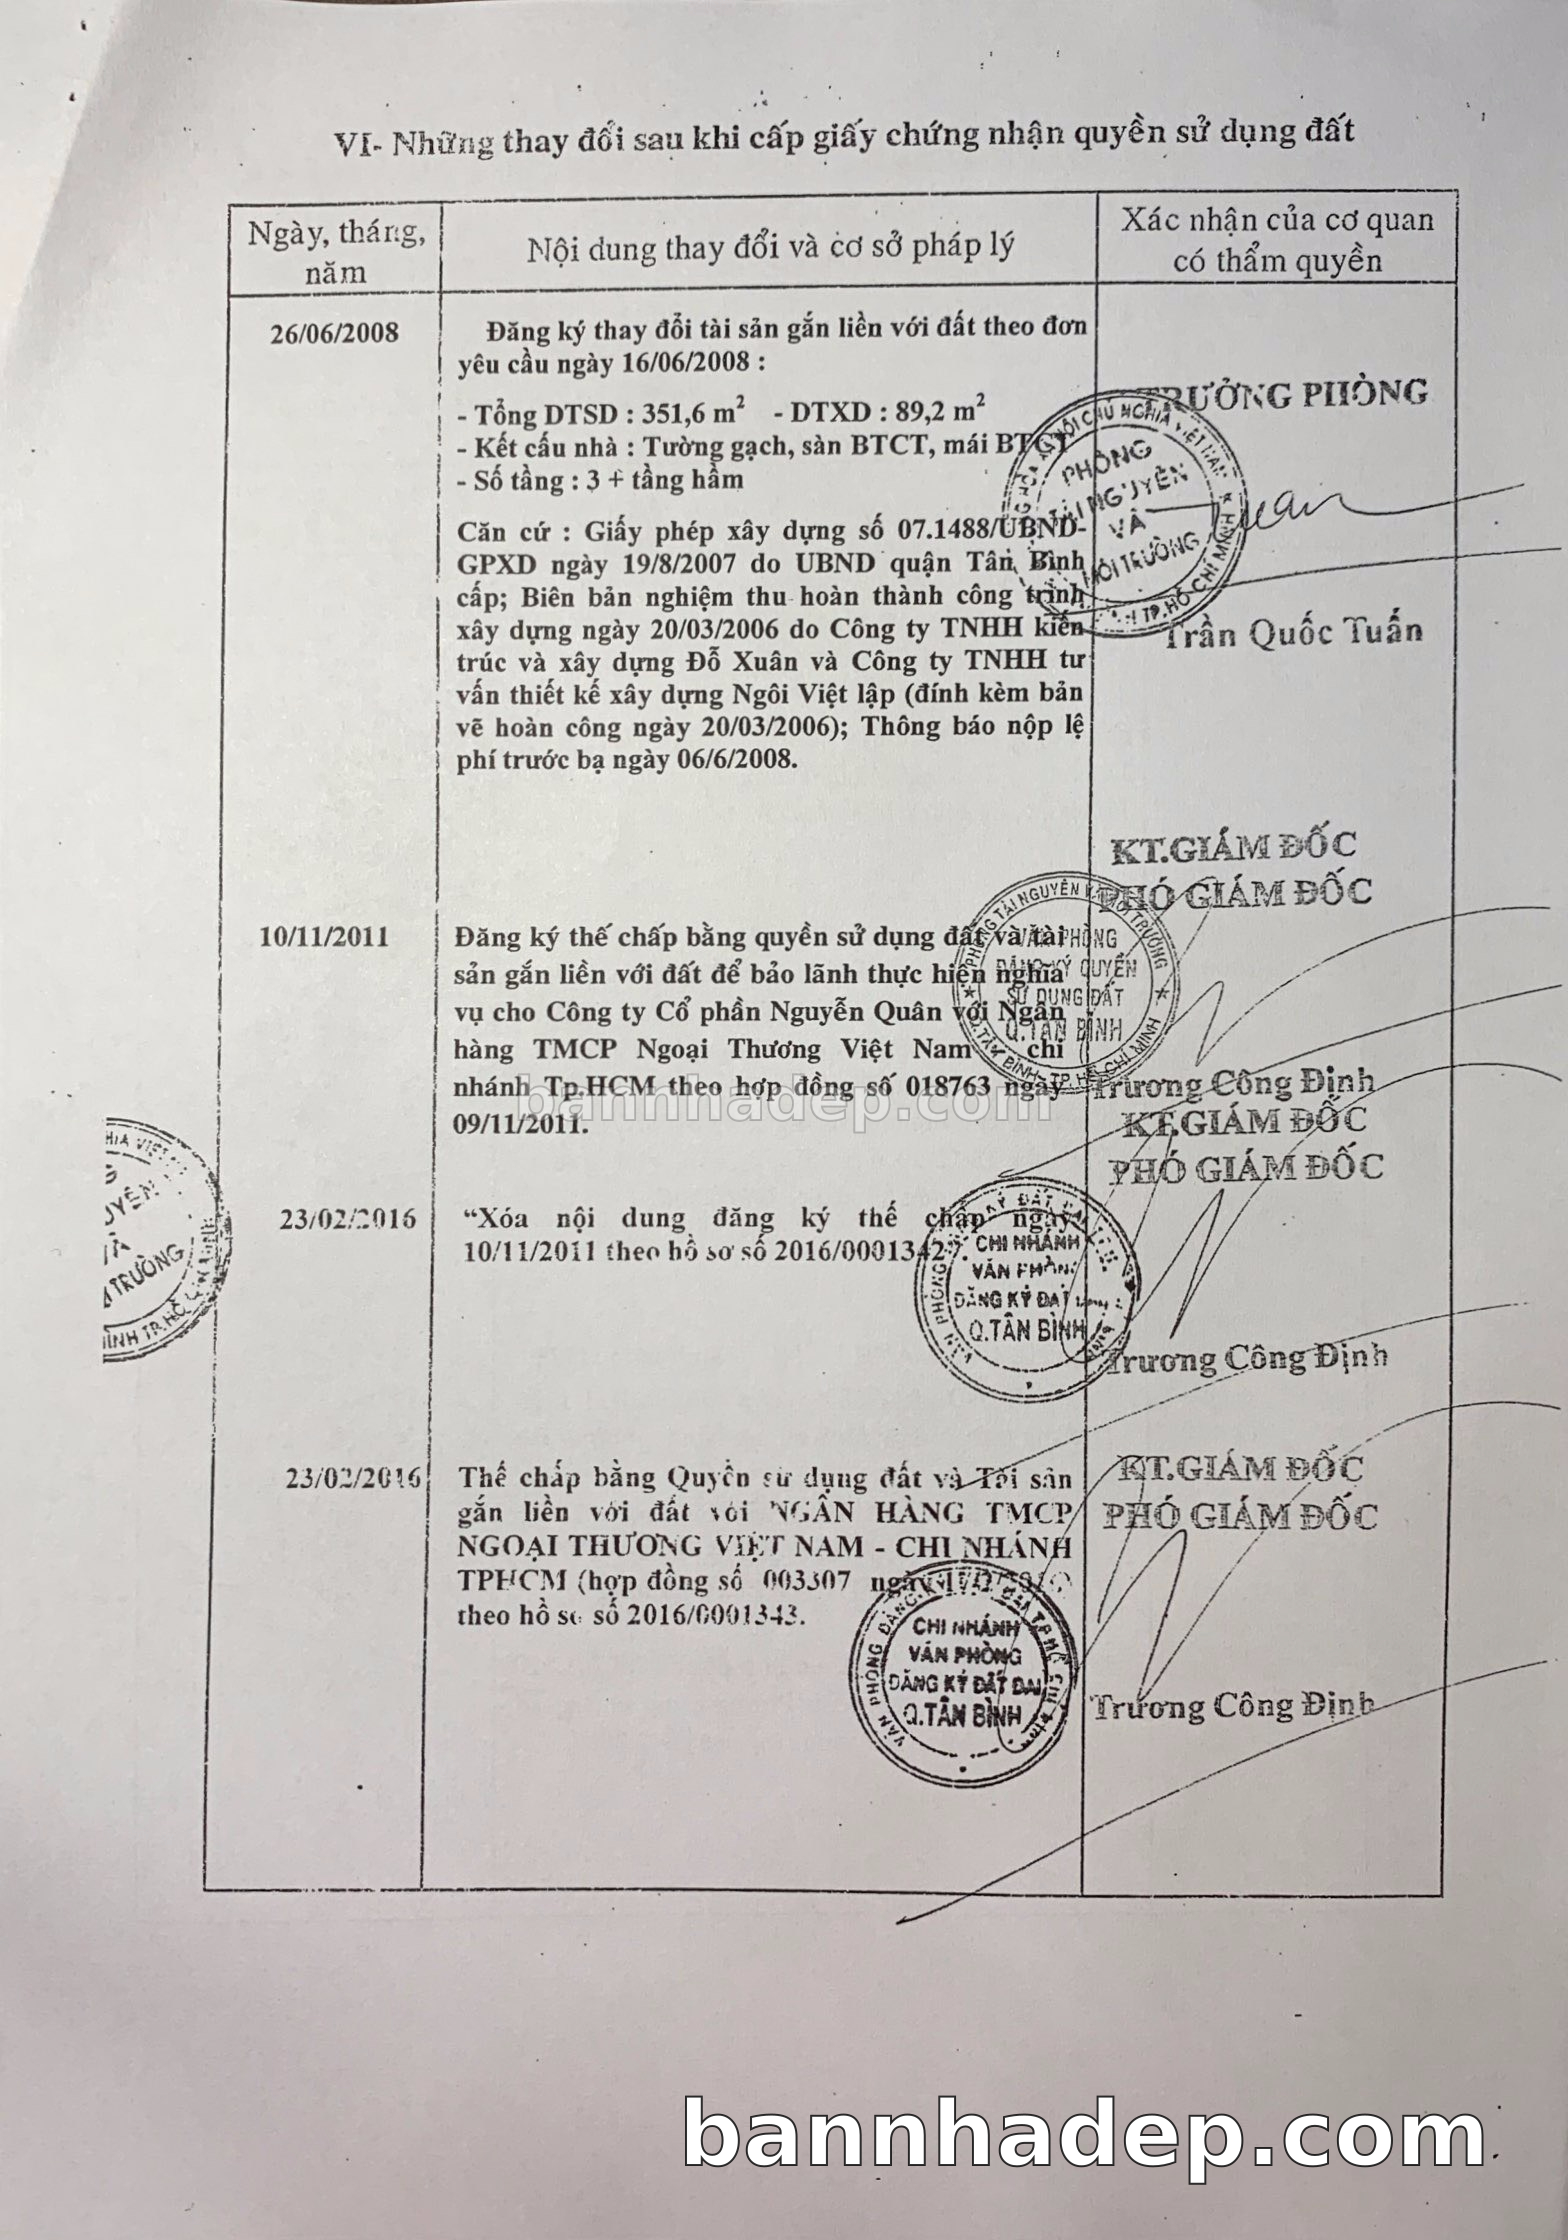 VI- Những thay đổi sau khi cấp giấy chứng nhận quyền sử dụng đất
Ngày, tháng,
năm
Nội dung thay đổi và cơ sở pháp lý
Xác nhận của cơ quan
có thẩm quyền
26/06/2008
Đăng ký thay đổi tài sản gắn liền với đất theo đơn
yêu cầu ngày 16/06/2008 :
- Tổng DTSD : 351,6 m² - DTXD : 89,2 m²
- Kết cấu nhà : Tường gạch, sàn BTCT, mái BTCT
- Số tầng : 3 + tầng hầm
Căn cứ : Giấy phép xây dựng số 07.1488/UBND-
GPXD ngày 19/8/2007 do UBND quận Tân Bình
cấp; Biên bản nghiệm thu hoàn thành công trình
xây dựng ngày 20/03/2006 do Công ty TNHH kiến
trúc và xây dựng Đỗ Xuân và Công ty TNHH tư
vấn thiết kế xây dựng Ngôi Việt lập (đính kèm bản
vẽ hoàn công ngày 20/03/2006); Thông báo nộp lệ
phí trước bạ ngày 06/6/2008.
TRƯỞNG PHÒNG
PHÒNG
TÀI NGUYÊN
VÀ
MÔI TRƯỜNG
Trần Quốc Tuấn
10/11/2011
Đăng ký thế chấp bằng quyền sử dụng đất và tài
sản gắn liền với đất để bảo lãnh thực hiện nghĩa
vụ cho Công ty Cổ phần Nguyễn Quân với Ngân
hàng TMCP Ngoại Thương Việt Nam - chi
nhánh Tp.HCM theo hợp đồng số 018763 ngày
09/11/2011.
KT.GIÁM ĐỐC
PHÓ GIÁM ĐỐC
VĂN PHÒNG
ĐĂNG KÝ QUYỀN
SỬ DỤNG ĐẤT
Q.TÂN BÌNH
Trương Công Định
bannhadep.com
23/02/2016
“Xóa nội dung đăng ký thế chấp ngày
10/11/2011 theo hồ sơ số 2016/0001342”.
KT.GIÁM ĐỐC
PHÓ GIÁM ĐỐC
CHI NHÁNH
VĂN PHÒNG
ĐĂNG KÝ ĐẤT
Q.TÂN BÌNH
Trương Công Định
23/02/2016
Thế chấp bằng Quyền sử dụng đất và Tài sản
gắn liền với đất với NGÂN HÀNG TMCP
NGOẠI THƯƠNG VIỆT NAM - CHI NHÁNH
TPHCM (hợp đồng số 003307 ngày
theo hồ sơ số 2016/0001343.
KT.GIÁM ĐỐC
PHÓ GIÁM ĐỐC
CHI NHÁNH
VĂN PHÒNG
ĐĂNG KÝ ĐẤT ĐAI
Q.TÂN BÌNH
Trương Công Định
bannhadep.com